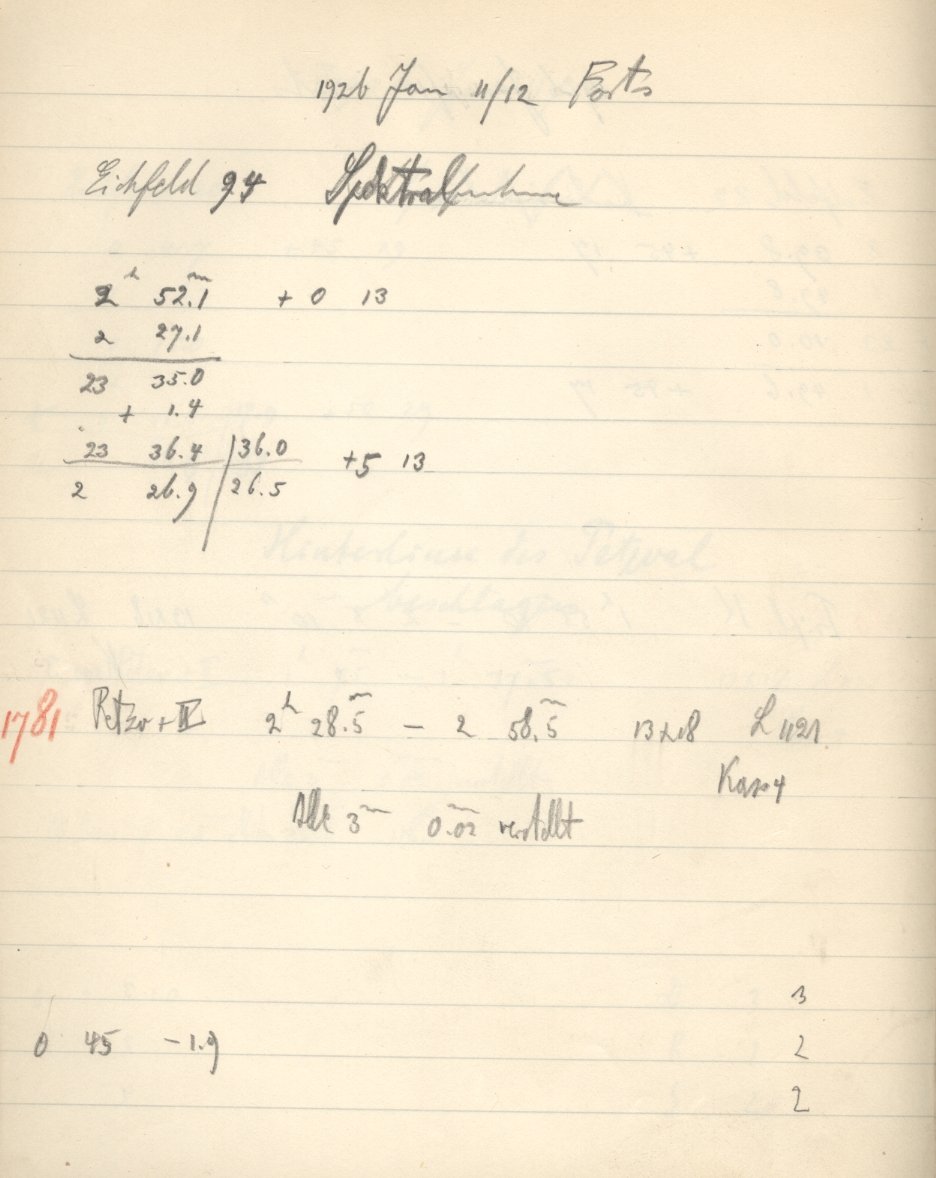 1926 Jan 11/12 Forts
Eichfeld 94 Spektralaufnahme
2h 52.1m + 0 13
2 27.1
23 35.0
+ 1.4
23 36.4 | 36.0 +5 13
2 26.9 | 26.5
1781 Petzv + IV 2h 28.5m – 2 58.5m 13x18 L 1121
Kass 4
Alle 3m 0.02m verstellt
3
0 45 -1.9 2
2